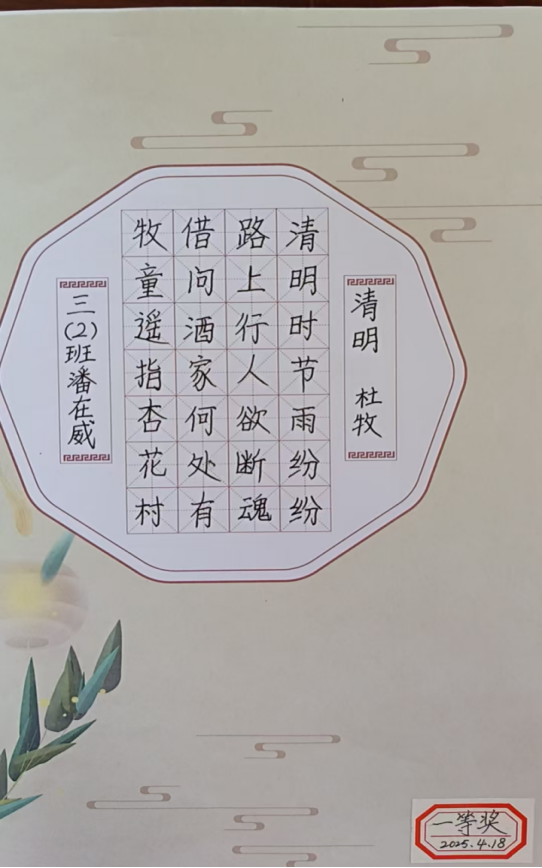 清明 杜牧
清明时节雨纷纷
路上行人欲断魂
借问酒家何处有
牧童遥指杏花村
三(2)班潘在威
一等奖
2025.4.18